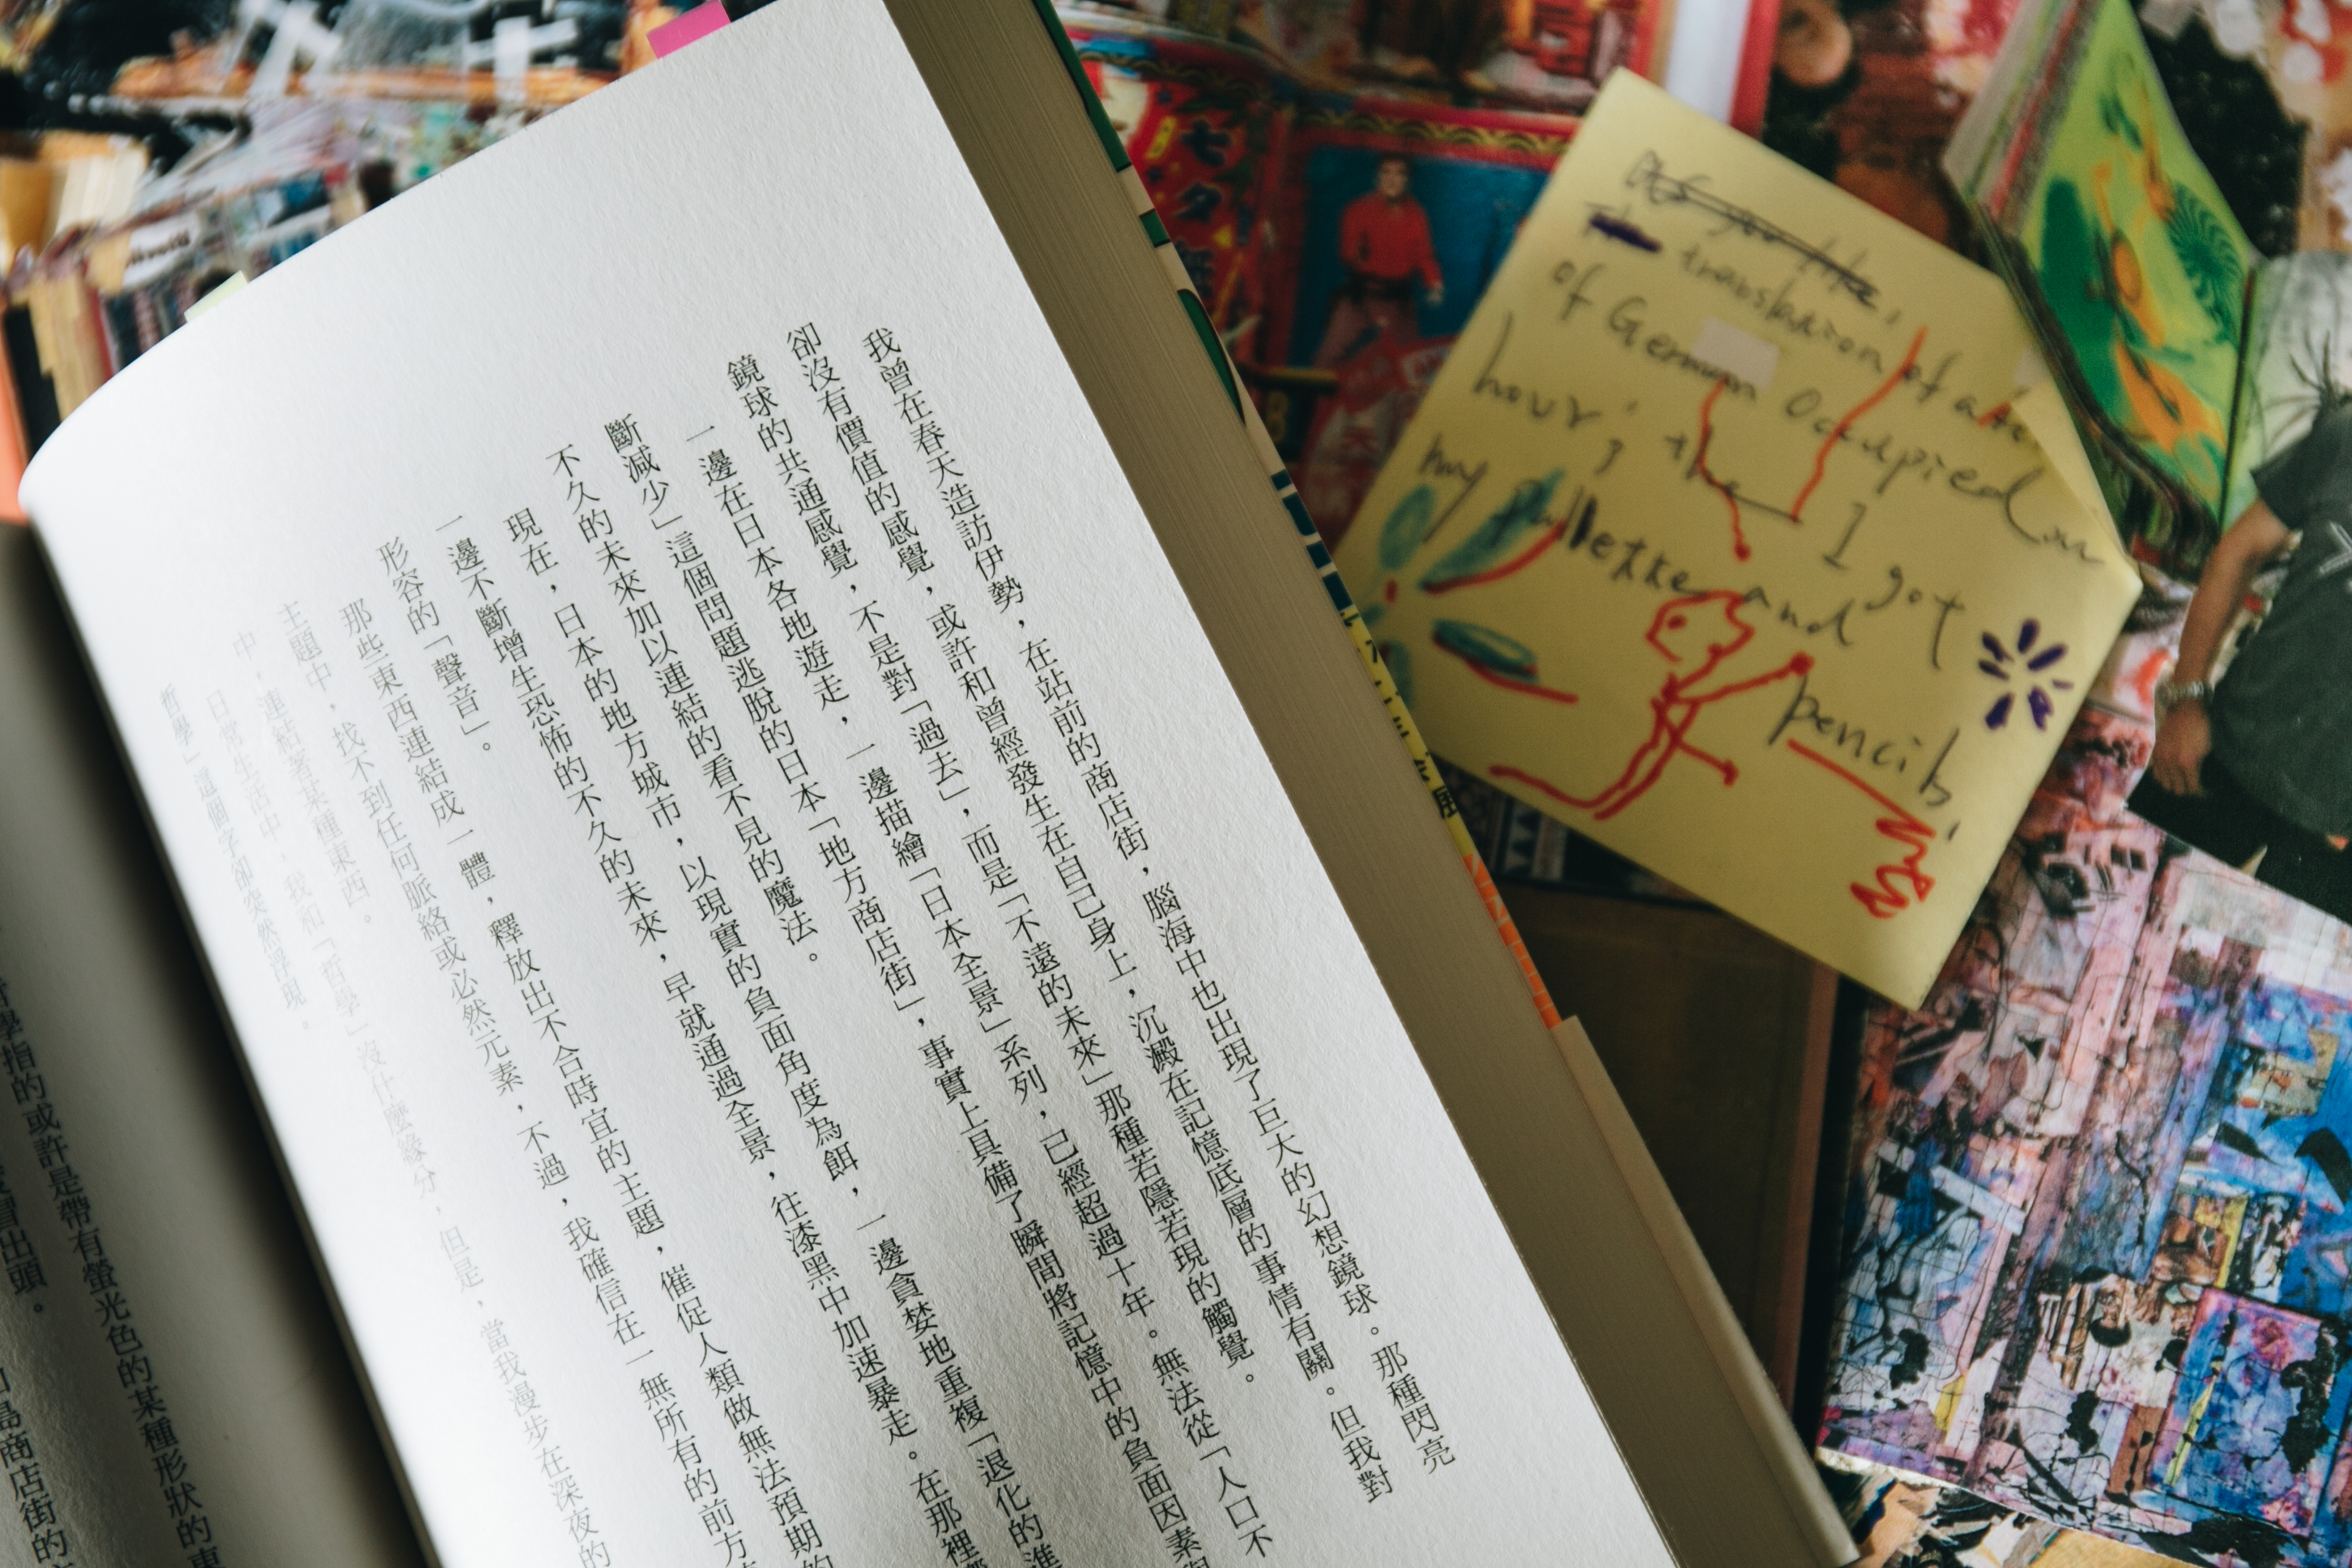 我曾在春天造訪伊勢，在站前的商店街，腦海中也出現了巨大的幻想鏡球。那種閃亮
卻沒有價值的感覺，或許和曾經發生在自己身上，沉澱在記憶底層的事情有關。但我對
鏡球的共通感覺，不是對「過去」，而是「不遠的未來」那種若隱若現的觸覺。
一邊在日本各地遊走，一邊描繪「日本全景」系列，已經超過十年。無法從「人口不
斷減少」這個問題逃脫的日本「地方商店街」，事實上具備了瞬間將記憶中的負面因素
不久的未來加以連結的看不見的魔法。
現在，日本的地方城市，以現實的負面角度為餌，一邊貪婪地重複「退化的進
一邊不斷增生恐怖的不久的未來，早就通過全景，往漆黑中加速暴走。在那裡
形容的「聲音」。
那些東西連結成一體，釋放出不合時宜的主題，催促人類做無法預期的
主題中，找不到任何脈絡或必然元素，不過，我確信在一無所有的前方
中，連結著某種東西。
日常生活中，我和「哲學」沒什麼緣分，但是，當我漫步在深夜的
哲學」這個字卻突然浮現。
學指的或許是帶有螢光色的某種形狀的東
冒出頭。
島商店街的
translation of a
of German Occupied
hour', the I got
my pallette and
pencils
七夕